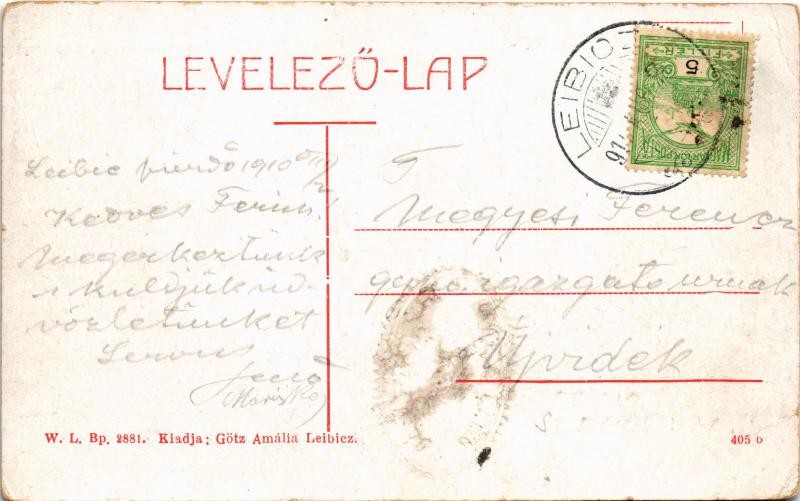 LEVELEZŐ-LAP
LEIBICZ
FILLÉR
5
Leibic fürdő 1910
Kedves Ferim!
Megérkeztünk
s küldjük üd-
vözletünket
Servus
Mariska
T
Megyesi Ferencz
igazgató urnak
Újvidék
W. L. Bp. 2881. Kiadja: Götz Amália Leibicz.
405 b